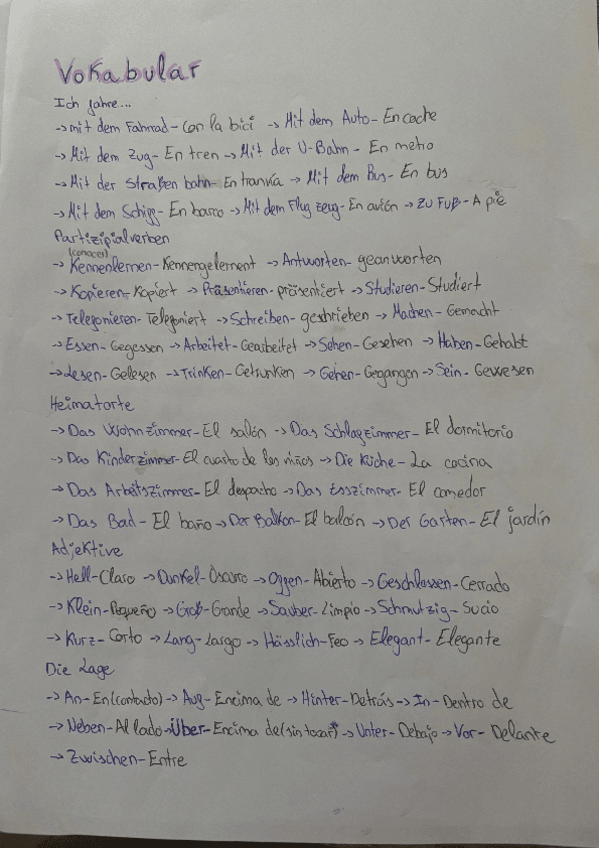 Vokabular
Ich fahre...
→mit dem Fahrrad-Con la bici → Mit dem Auto-En coche
→Mit dem Zug-En tren→Mit der U-Bahn-En metro
→Mit der Straßen bahn-En tranvía → Mit dem Bus-En bus
→Mit dem Schiff-En barco→Mit dem Flug zeug-En avión→ZU FUß-A pie
Partizipialverben
(conocer)
→Kennenlernen-Kennengelernent →Antworten-geanworten
→Kopieren-Kopiert →Präsentieren-präsentiert→Studieren-Studiert
→Telefonieren-Telefoniert →Schreiben-geschrieben→Machen-Gemacht
→Essen-Gegessen→Arbeitet-Gearbeitet→Sehen-Gesehen →Haben-Gehabt
→Lesen-Gelesen→Trinken-Getrunken→Gehen-Gegangen→Sein-Gewesen
Heimatorte
→Das Wohnzimmer-El salón →Das Schlafzimmer-El dormitorio
→Das Kinderzimmer-El cuarto de los niños→Die Küche-La cocina
→Das Arbeitszimmer-El despacho→Das Esszimmer-El comedor
→Das Bad-El baño→Der Balkon-El balcón→Der Garten-El jardín
Adjektive
→Hell-Claro→Dunkel-Oscuro→Offen-Abierto→Geschlossen-Cerrado
→Klein-Pequeño→Groß-Grande→Sauber-Limpio→Schmutzig-Sucio
→Kurz-Corto→Lang-Largo→Hässlich-Feo→Elegant-Elegante
Die Lage
→An-En(contacto)→Auf-Encima de→Hinter-Detrás→In-Dentro de
→Neben-Al lado→Über-Encima de(sin tocar)→Unter-Debajo→Vor-Delante
→Zwischen-Entre